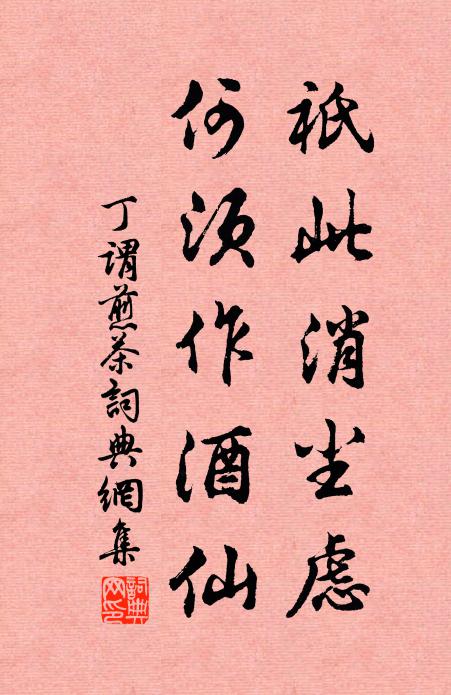 祇此消尘虑
何须作酒仙
丁謂煎茶詞典網集
詞典网印